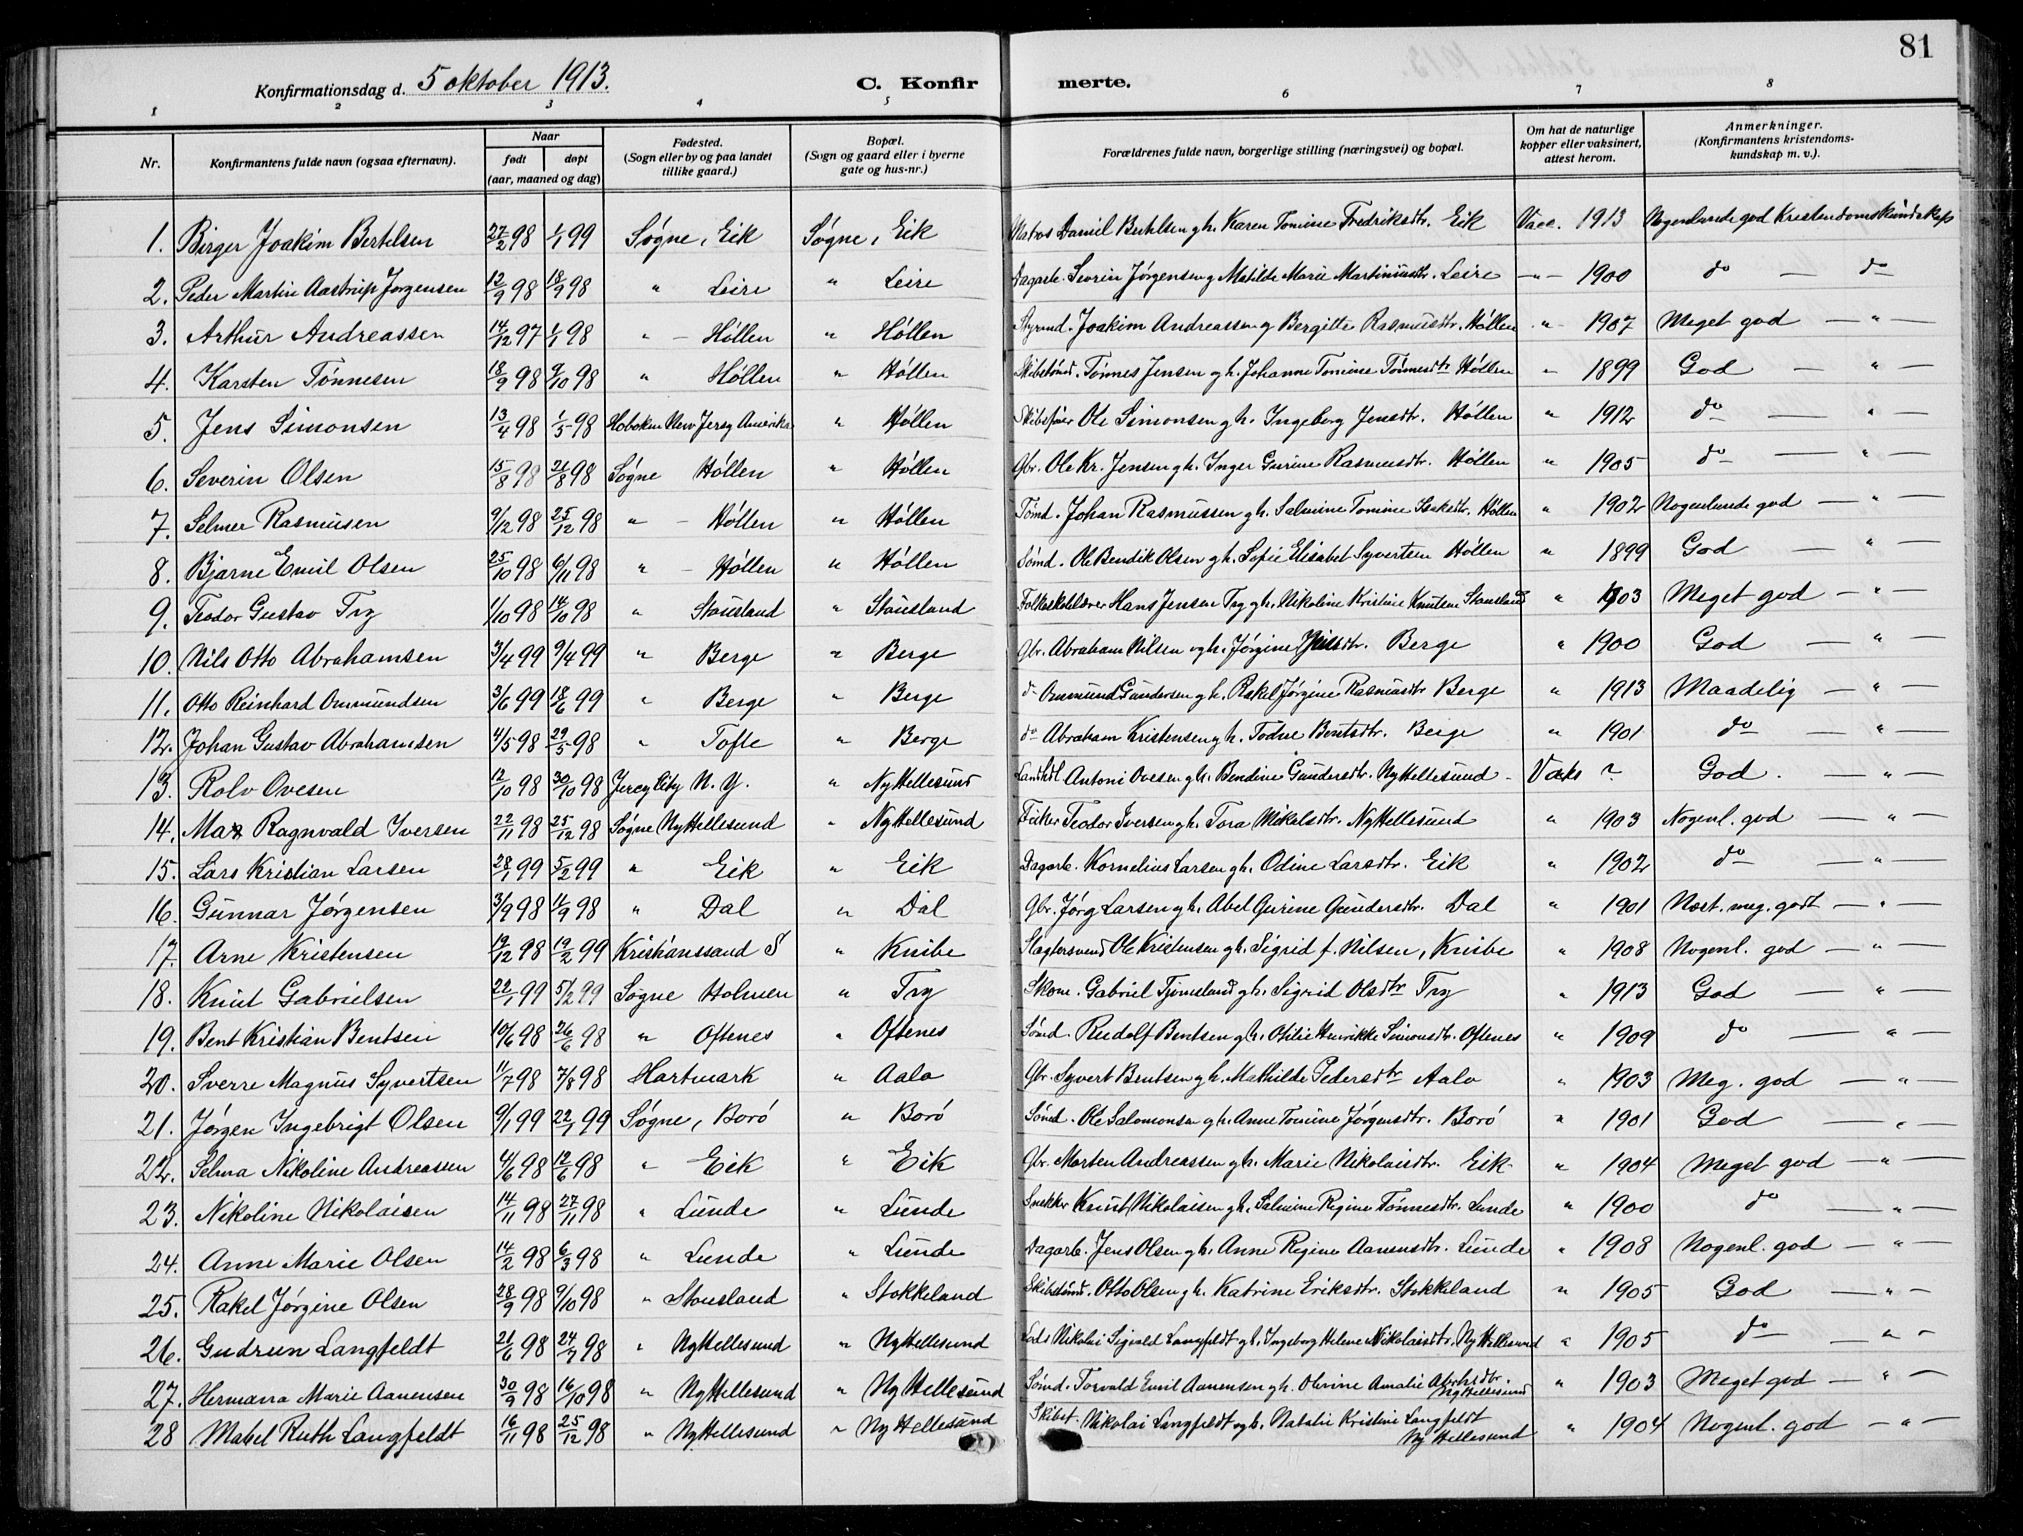 81
Konfirmationsdag d. 5 oktober 1913. C. Konfirmerte.
1 2 3 4 5 6 7 8
Nr. Konfirmantens fulde navn (ogsaa efternavn). Naar født døpt (aar, maaned og dag) Fødested. (Sogn eller by og paa landet tillike gaard.) Bopæl. (Sogn og gaard eller i byerne gate og hus-nr.) Forældrenes fulde navn, borgerlige stilling (næringsvei) og bopæl. Om hat de naturlige kopper eller vaksinert, attest herom. Anmerkninger. (Konfirmantens kristendoms-kundskap m. v.).
1. Birger Joakim Bertelsen 27/2 98 1/1 99 Søgne, Eik Søgne, Eik Matros Daniel Bertelsen g h. Karen Tomine Fredriksdtr. Eik Vacc. 1913 Nogenlunde god Kristendomskundskap
2. Peder Martin Aastrup Jørgensen 12/9 98 18/9 98 " Leire " Leire Dagarb. Sevrin Jørgensen g Matilde Marie Martiniusdtr. Leire —"— 1900 do — do
3. Arthur Andreassen 14/12 97 1/1 98 " — Høllen " Høllen Styrmd. Joakim Andreassen g Bergitte Rasmusdtr. Høllen " 1907 Meget god — " —
4. Karsten Tønnesen 18/9 98 9/10 98 " Høllen " Høllen Skibstømd. Tønnes Jensen g h. Johanne Tomine Tønnesdtr Høllen " 1899 God — " —
5. Jens Simonsen 13/4 98 1/5 98 Hoboken New Jersy Amerika " Høllen Skibsfører Ole Simonsen g h. Ingeborg Jensdtr. Høllen " 1912 do — " —
6. Severin Olsen 15/8 98 21/8 98 Søgne Høllen " Høllen Gbr. Ole Kr. Jensen g h. Inger Gurine Rasmusdtr. Høllen " 1905 do — " —
7. Selmer Rasmusen 9/12 98 25/12 98 " — Høllen " Høllen Tømd. Johan Rasmussen g h. Salmine Tomine Isaksdtr. Høllen " 1902 Nogenlunde god — " —
8. Bjarne Emil Olsen 25/10 98 6/11 98 " — Høllen " Høllen Sømd. Ole Bendik Olsen g h. Sofie Elisabet Syvertsen Høllen " 1899 God — " —
9. Teodor Gustav Try 1/10 98 14/10 98 " Stausland " Stausland Folkeskolelærer Hans Jensen Try g h. Nikoline Kristine Knutsen Stausland " 1903 Meget god — " —
10. Nils Otto Abrahamsen 3/4 99 9/4 99 " Berge " Berge Gbr. Abraham Nilsen og h. Jørgine Berge " 1900 God — " —
11. Otto Reinhard Ommundsen 3/6 99 18/6 99 " Berge " Berge do Ommund Gundersen g h. Rakel Jørgine Rasmusdtr Berge " 1913 Maadelig — " —
12. Johan Gustav Abrahamsen 4/5 98 29/5 98 " Tofte " Berge do Abraham Kristensen g h. Todne Bentsdtr. Berge " 1901 do — " —
13. Rolv Ovesen 12/10 98 30/10 98 Jercy City N. Y. " Ny Hellesund Landhdl. Antoni Ovesen g h. Bendine Gundersdtr. Ny Hellesund - Vaks ? God. — " —
14. Max Ragnvald Iversen 22/11 98 25/12 98 Søgne Ny Hellesund " Ny Hellesund Fisker Teodor Iversen g h. Tora Mikalsdtr. Ny Hellesund " 1903 Nogenl. god — " —
15. Lars Kristian Larsen 28/1 99 5/2 99 " Eik " Eik Dagarb. Kornelius Larsen g h. Odine Larsdtr. Eik " 1902 do — " —
16. Gunnar Jørgensen 3/9 98 11/9 98 " Dal " Dal Gbr. Jørg Larsen g h. Abel Gurine Gundersdtr. Dal " 1901 Næst. meg. godt — " —
17. Arne Kristensen 19/12 98 19/2 99 Kristianssand S " Knibe Slagtersvend Ole Kristensen g h. Sigrid f. Nilsen, Knibe " 1908 Nogenl. god — " —
18. Knut Gabrielsen 22/1 99 5/2 99 Søgne Holmen " Try Skom. Gabriel Tjomsland g h. Sigrid Olsdtr Try " 1913 God — " —
19. Bent Kristian Bentsen 10/6 98 26/6 98 " Oftenes " Oftenes Sømd. Rudolf Bentsen g h. Otilie Henrikke Simonsdtr. Oftenes " 1909 do — " —
20. Sverre Magnus Syvertsen 11/7 98 7/8 98 Hartmark " Aalo Gbr. Syvert Bentsen g h. Mathilde Pedersdtr Aalo " 1903 Meg. god — " —
21. Jørgen Ingebrigt Olsen 9/1 99 22/1 99 Søgne, Borø " Borø Sømd. Ole Salomonsen g h. Anne Tomine Jørgensdtr. Borø " 1901 God — " —
22. Selma Nikoline Andreassen 4/6 98 12/6 98 " Eik " Eik Gbr. Morten Andreassen g h. Marie Nikolaisdtr. Eik " 1904 Meget god — " —
23. Nikoline Nikolaisen 14/11 98 27/11 98 " Lunde " Lunde Snekker Knut Nikolaisen g h. Salmine Regine Tønnesdtr. Lunde " 1900 do — " —
24. Anne Marie Olsen 14/2 98 6/3 98 " Lunde " Lunde Dagarb. Jens Olsen g h. Anne Regine Aanensdtr. Lunde " 1908 Nogenl. god — " —
25. Rakel Jørgine Olsen 28/9 98 9/10 98 " Stousland " Stokkeland Skibstømd. Otto Olsen g h. Katrine Eriksdtr. Stokkeland " 1905 God — " —
26. Gudrun Langfeldt 21/6 98 24/7 98 " Ny Hellesund " Ny Hellesund Lods Nikolai Sigvald Langfeldt g h. Ingeborg Helene Nikolaisdtr. Ny Hellesund " 1905 do — " —
27. Hermana Marie Aanensen 30/9 98 16/10 98 " Ny Hellesund " Ny Hellesund Sømd. Torvald Emil Aanensen g h. Olevine Amalie Abrhdtr. Ny Hellesund " 1903 Meget god — " —
28 Mabel Ruth Langfeldt 16/11 98 25/12 98 " Ny Hellesund " Ny Hellesund Skibst. Nikolai Langfeldt og h. Natalie Kristine Langfeldt Ny Hellesund " 1904 Nogenl. god — " —